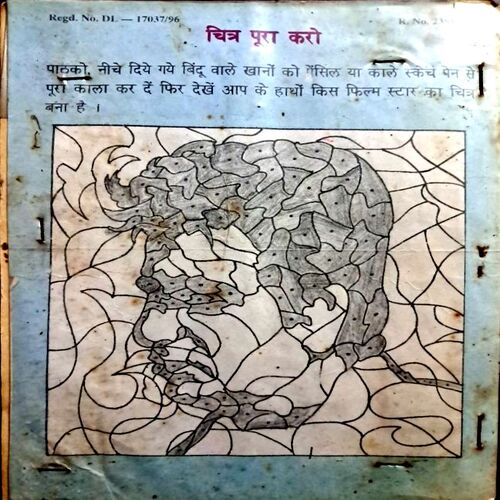 Regd. No. DL — 17037/96
R. No. 
चित्र पूरा करो
पाठको, नीचे दिये गये बिंदू वाले खानों को पेंसिल या काले स्केच पेन से
पूरा काला कर दें फिर देखें आप के हाथों किस फिल्म स्टार का चित्र
बना है ।